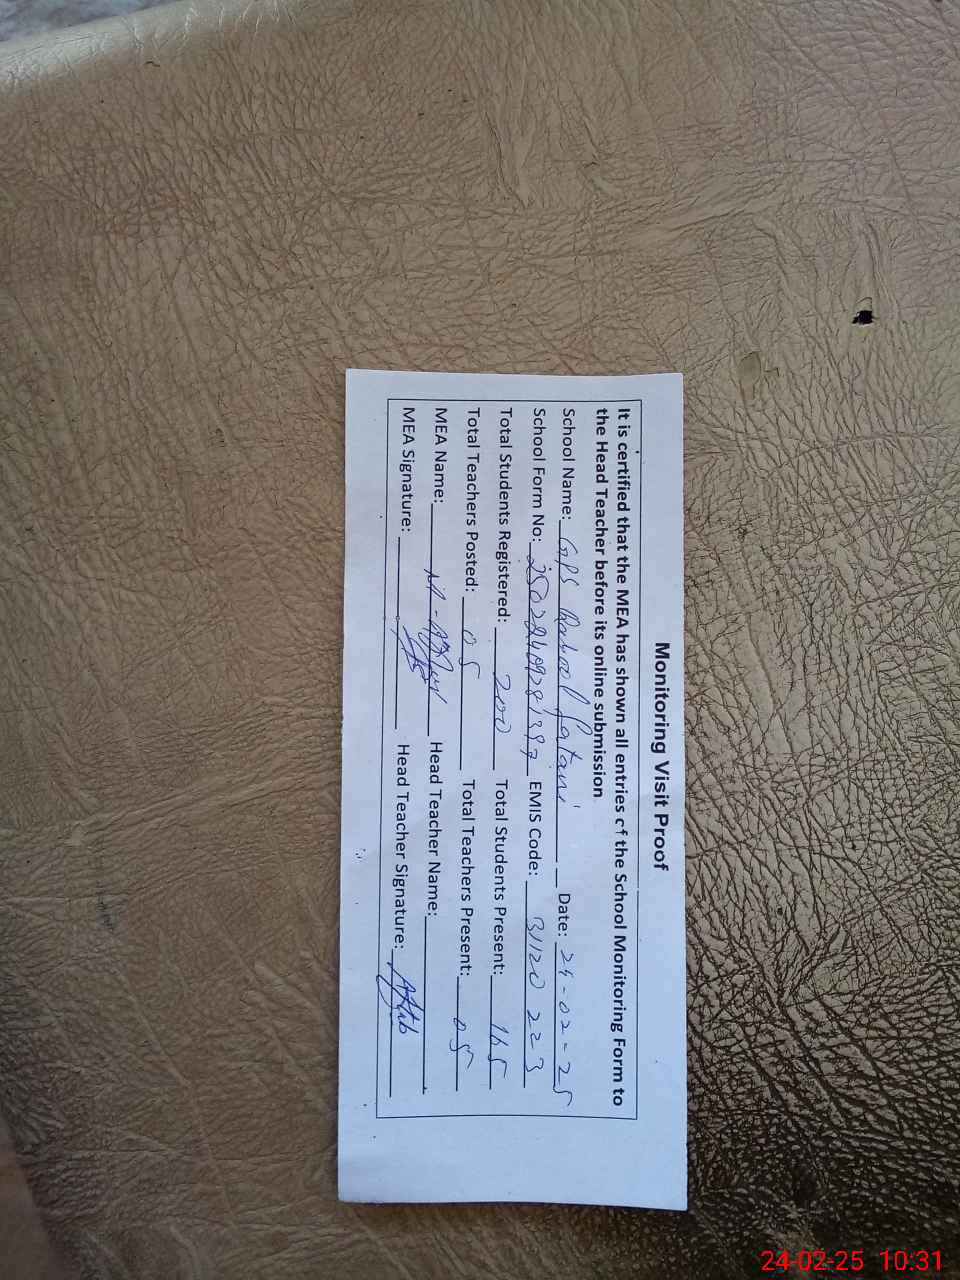 Monitoring Visit Proof
It is certified that the MEA has shown all entries of the School Monitoring Form to
the Head Teacher before its online submission
School Name: GPS Rasool Date: 24-02-25
School Form No: EMIS Code: 31120 223
Total Students Registered: 200 Total Students Present: 165
Total Teachers Posted: 05 Total Teachers Present: 05
MEA Name: Head Teacher Name:
MEA Signature: Head Teacher Signature:
24-02-25 10:31